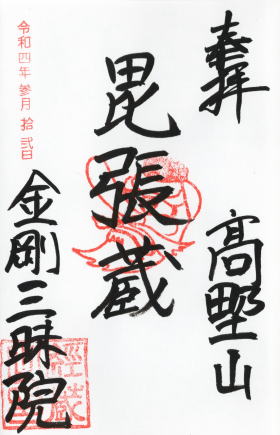 奉拝
高野山
毘張蔵
令和四年参月拾弐日
金剛三昧院
経蔵